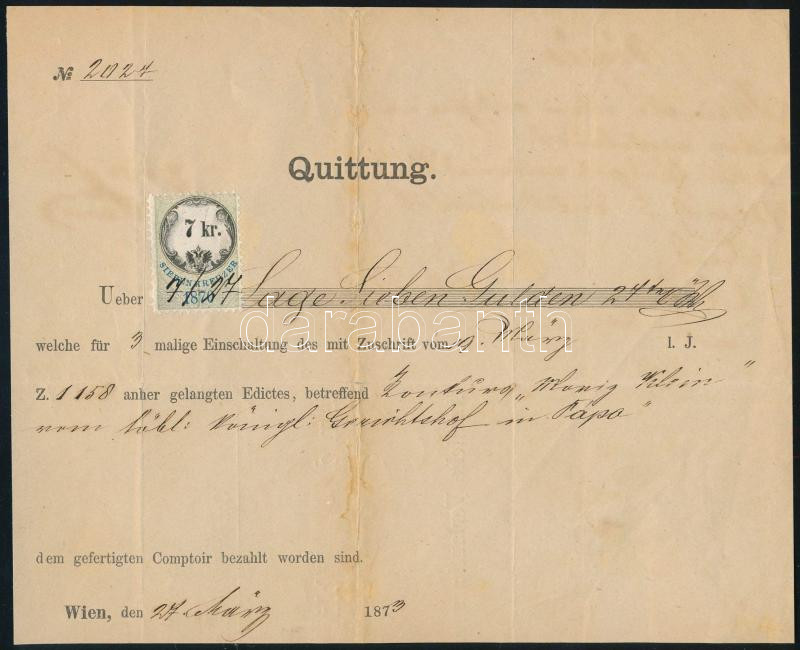 № 2024
Quittung.
7 kr.
SIEBEN KREUZER
187
Ueber 7/27 Sage Sieben Gulden 27
darabanth
welche für 3 malige Einschaltung des mit Zuschrift vom 9. März l. J.
Z. 1158 anher gelangten Edictes, betreffend Konkurs „Moriz Klein"
vom löbl: königl: Gerichtshof in Pápa"
dem gefertigten Comptoir bezahlt worden sind.
Wien, den 27 März 1873